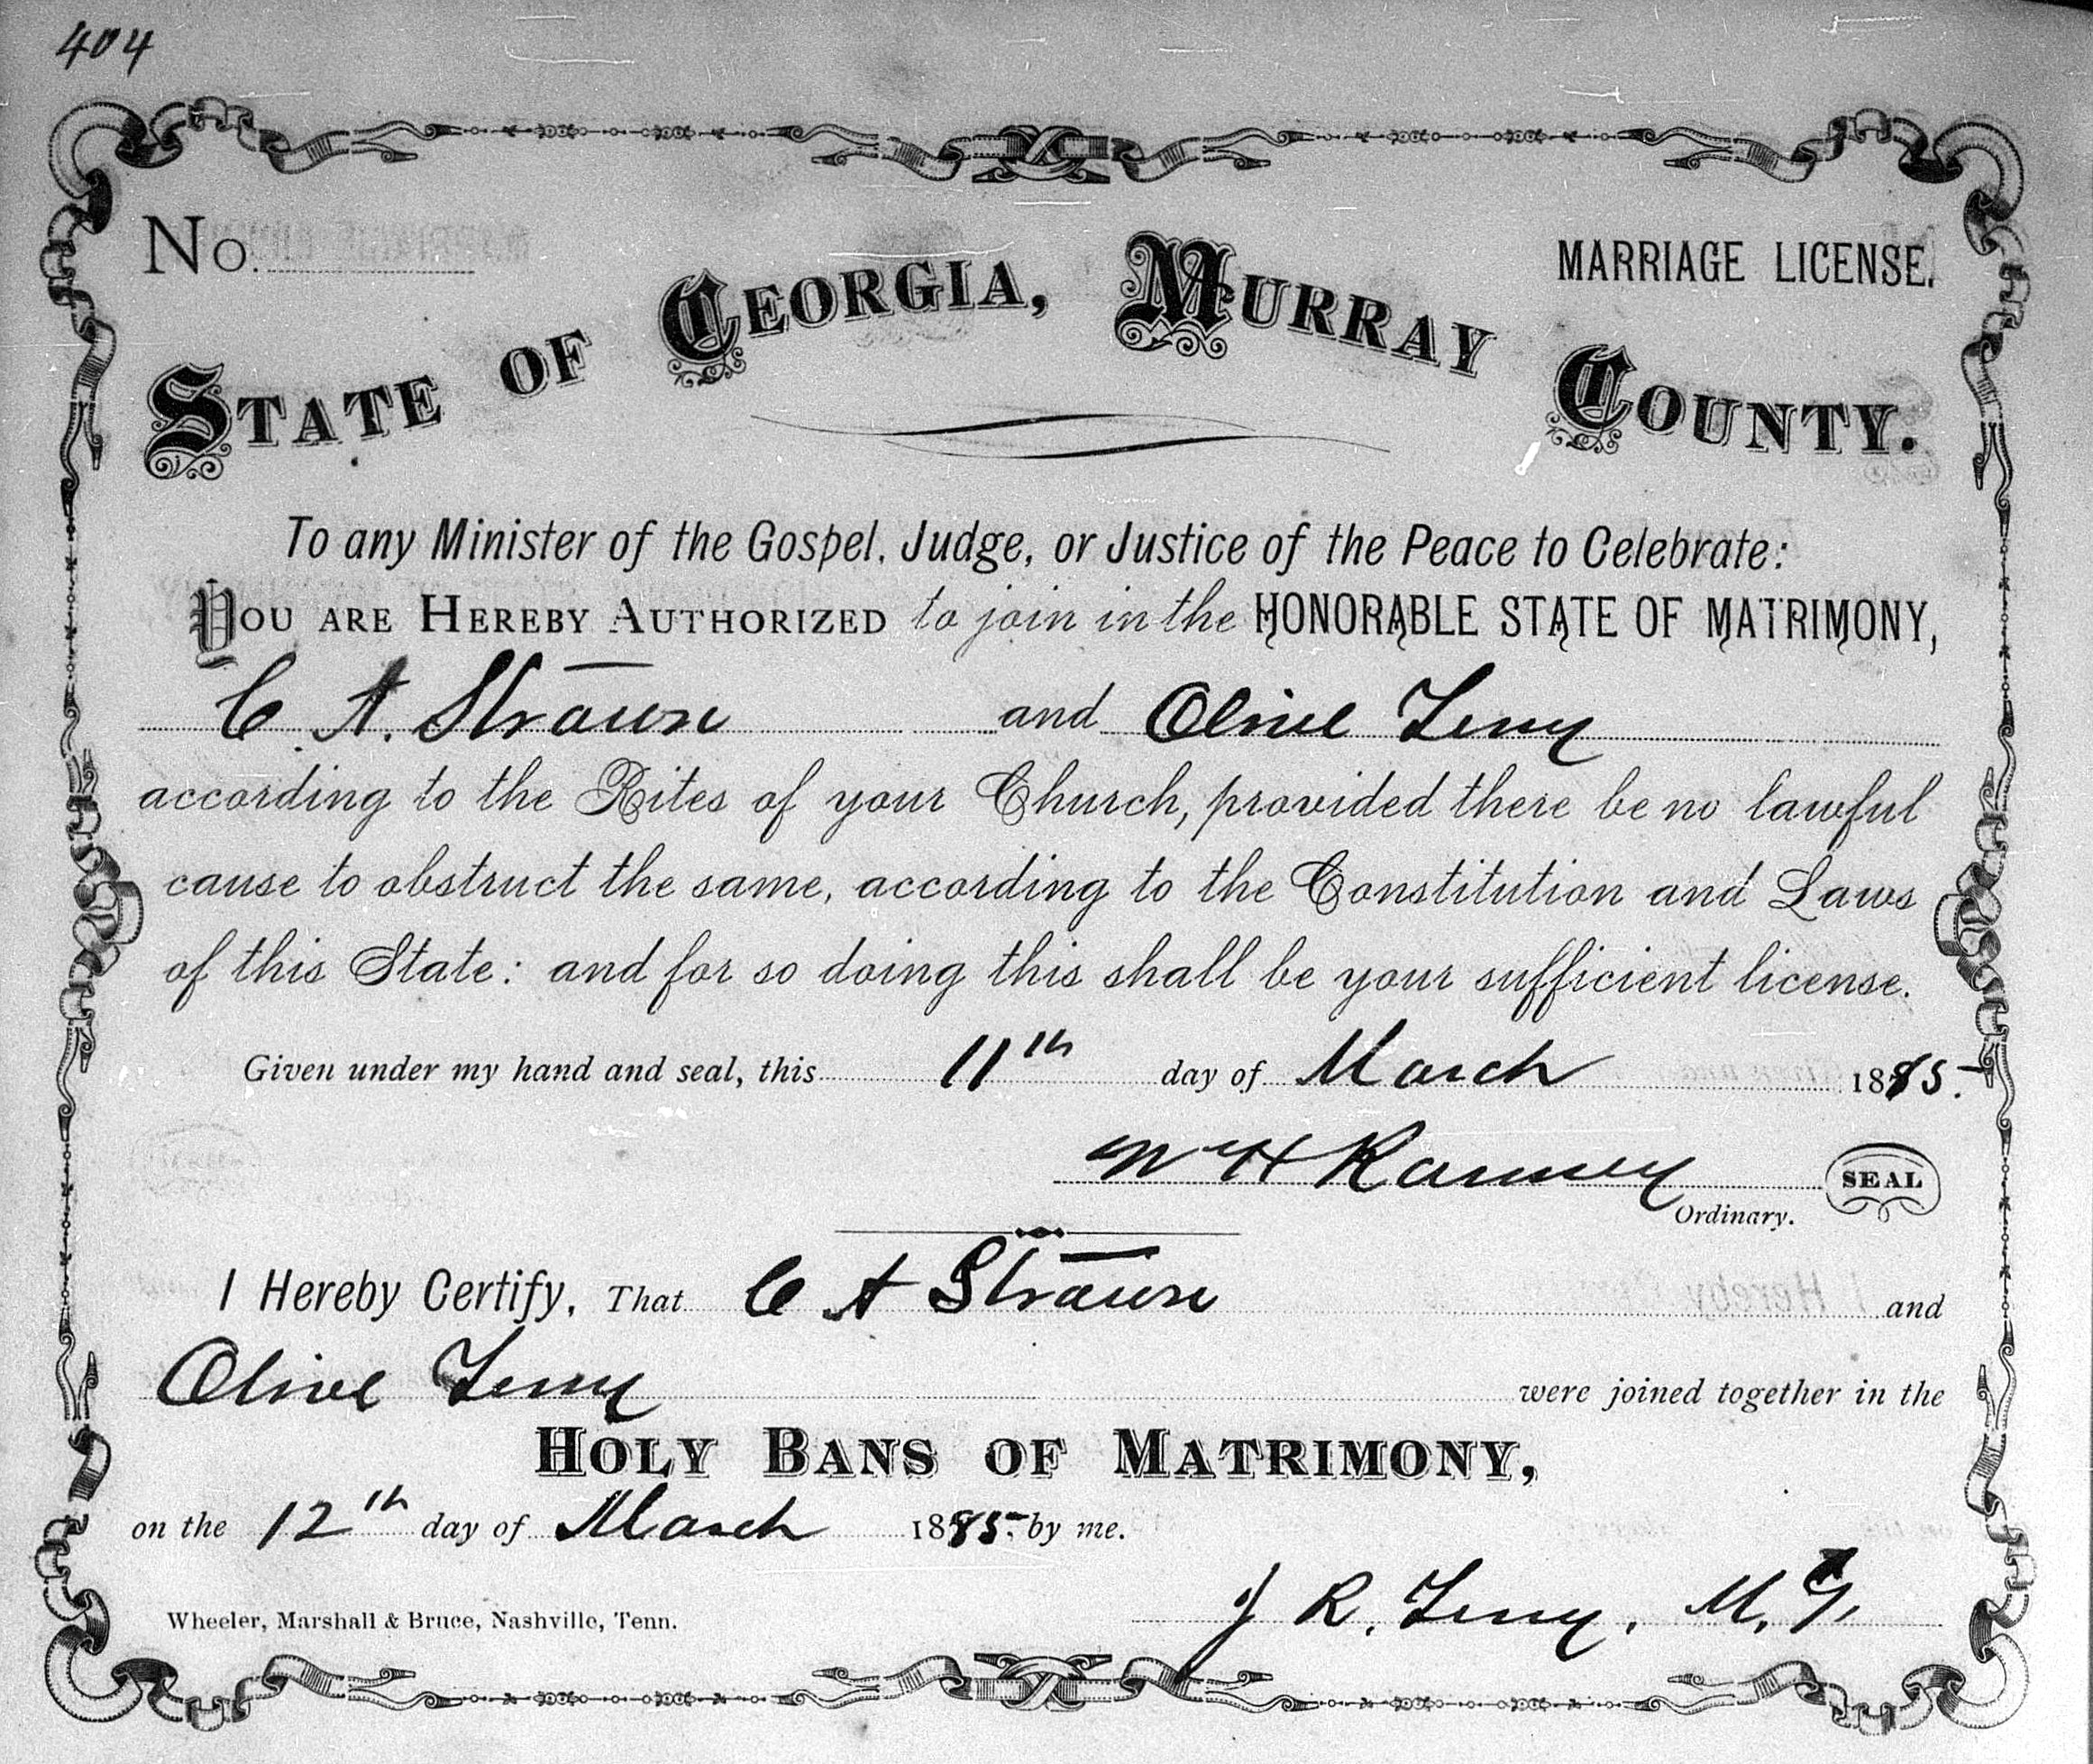 404
No.
MARRIAGE LICENSE.
STATE OF GEORGIA, MURRAY COUNTY.
To any Minister of the Gospel, Judge, or Justice of the Peace to Celebrate:
YOU ARE HEREBY AUTHORIZED to join in the HONORABLE STATE OF MATRIMONY,
C. A. Strawn and Olive Terry
according to the Rites of your Church, provided there be no lawful
cause to obstruct the same, according to the Constitution and Laws
of this State: and for so doing this shall be your sufficient license.
Given under my hand and seal, this 11th day of March 1885.
W H Ramsey SEAL
Ordinary.
I Hereby Certify, That C A Strawn and
Olive Terry were joined together in the
HOLY BANS OF MATRIMONY,
on the 12th day of March 1885. by me.
J R. Terry, M. G.
Wheeler, Marshall & Bruce, Nashville, Tenn.